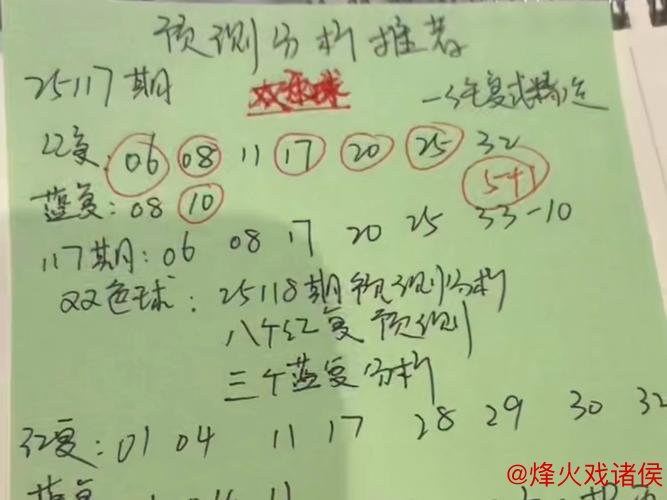 预测分析推荐
25117期 双色球 一等复式精选
红复: 06 08 11 17 20 25 32
蓝复: 08 10 5+1
117期: 06 08 17 20 25 33-10
双色球: 25118期预测分析
八个红复预测
三个蓝复分析
红复: 01 04 11 17 28 29 30 32
蓝复:
@烽火戏诸侯